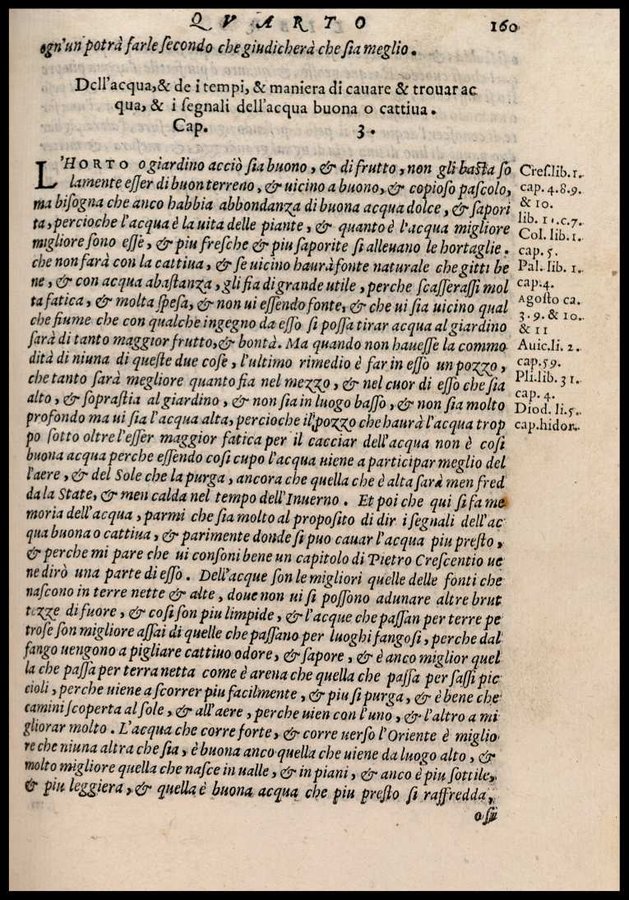 QVARTO 160
ogn'un potrà farle secondo che giudicherà che sia meglio.
Dell'acqua, & de i tempi, & maniera di cauare & trouar ac
qua, & i segnali dell'acqua buona o cattiua.
Cap. 3.
L'HORTO o giardino acciò sia buono, & di frutto, non gli basta so
lamente esser di buon terreno, & uicino a buono, & copioso pascolo,
ma bisogna che anco habbia abbondanza di buona acqua dolce, & sapori
ta, percioche l'acqua è la uita delle piante, & quanto è l'acqua migliore
migliore sono esse, & piu fresche & piu saporite si alleuano le hortaglie.
che non farà con la cattiua, & se uicino haurà fonte naturale che gitti be
ne, & con acqua abastanza, gli fia di grande utile, perche scasserassi mol
ta fatica, & molta spesa, & non ui essendo fonte, & che ui sia uicino qual
che fiume che con qualche ingegno da esso si possa tirar acqua al giardino
sarà di tanto maggior frutto, & bontà. Ma quando non hauesse la commo
dità di niuna di queste due cose, l'ultimo rimedio è far in esso un pozzo,
che tanto sarà megliore quanto fia nel mezzo, & nel cuor di esso che sia
alto, & soprastia al giardino, & non sia in luogo basso, & non sia molto
profondo ma ui sia l'acqua alta, percioche il pozzo che haurà l'acqua trop
po sotto oltre l'esser maggior fatica per il cacciar dell'acqua non è cosi
buona acqua perche essendo cosi cupo l'acqua uiene a participar meglio del
l'aere, & del Sole che la purga, ancora che quella che è alta sarà men fred
da la State, & men calda nel tempo dell'Inuerno. Et poi che qui si fa me
moria dell'acqua, parmi che sia molto al proposito di dir i segnali dell'ac
qua buona o cattiua, & parimente donde si puo cauar l'acqua piu presto,
& perche mi pare che ui consoni bene un capitolo di Pietro Crescentio ue
ne dirò una parte di esso. Dell'acque son le migliori quelle delle fonti che
nascono in terre nette & alte, doue non ui si possono adunare altre brut
tezze di fuore, & cosi son piu limpide, & l'acque che passan per terre pe
trose son migliore assai di quelle che passano per luoghi fangosi, perche dal
fango uengono a pigliare cattiuo odore, & sapore, & è anco miglior quel
la che passa per terra netta come è arena che quella che passa per sassi pic
cioli, perche uiene a scorrer piu facilmente, & piu si purga, & è bene che
camini scoperta al sole, & all'aere, perche uien con l'uno, & l'altro a mi
gliorar molto. L'acqua che corre forte, & corre uerso l'Oriente è miglio
re che niuna altra che sia, è buona anco quella che uiene da luogo alto, &
molto migliore quella che nasce in ualle, & in piani, & anco è piu sottile,
& piu leggiera, & quella è buona acqua che piu presto si raffredda,
o si
Cres. lib. 1.
cap. 4. 8. 9.
& 10.
lib. 11. c. 7.
Col. lib. 1.
cap. 5.
Pal. lib. 1.
cap. 4.
Agosto ca.
3. 9. & 10.
& 11
Auic. li. 2.
cap. 59.
Pli. lib. 31.
cap. 4.
Diod. li. 5.
cap. hidor.